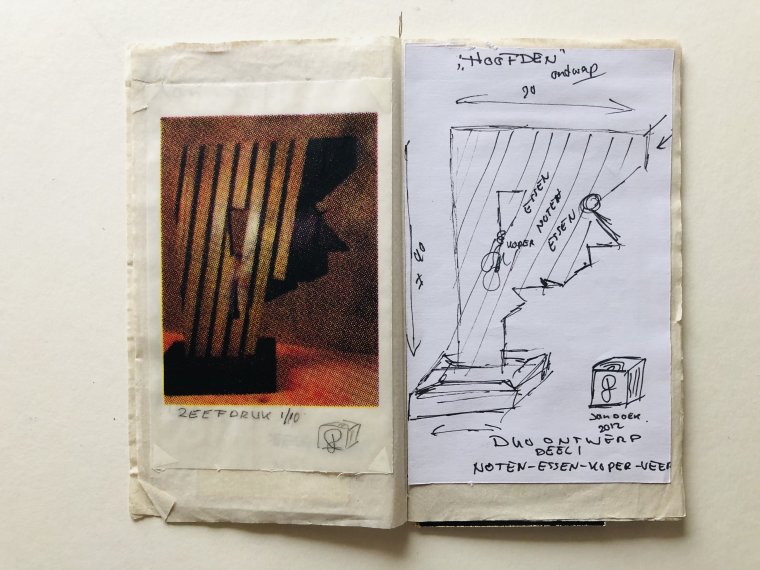 ZEEFDRUK 1/10
"HOOFDEN"
ontwerp
90
ESSEN
NOTEN
ESSEN
KOPER
DUO ONTWERP
DEEL 1
2012
NOTEN-ESSEN-KOPER-VEER